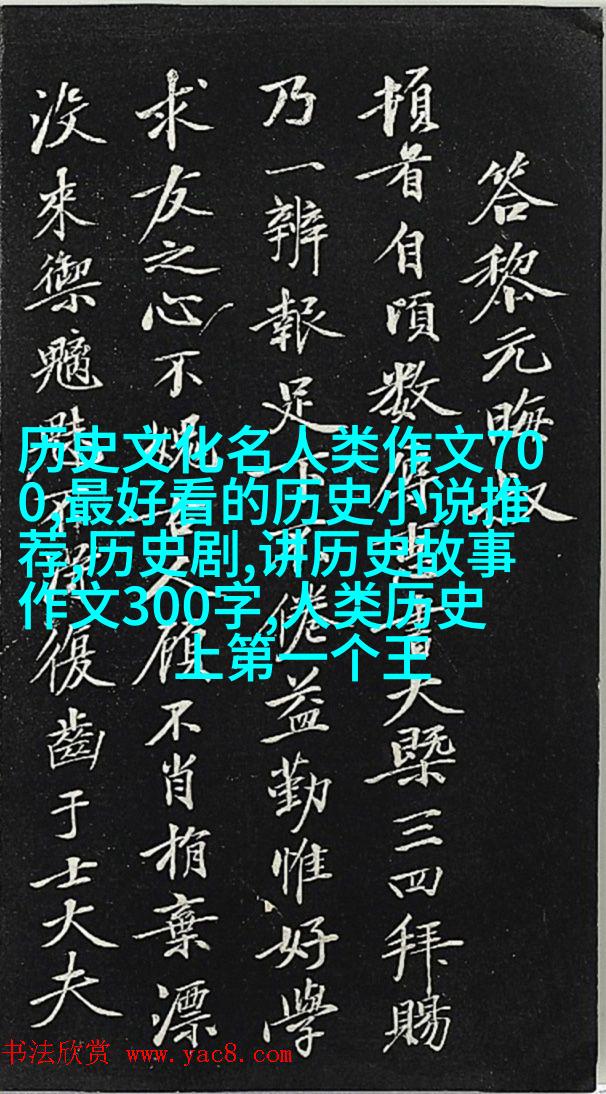 答黎元晦叔
頓首自頃数辱書大槩三四拜賜
乃一辨報足下不倦益勤惟好學
求友之心不愧古人顧不肖捐棄漂
没來禦魑魅復齒于士大夫
历史文化名人类作文70
0,最好看的历史小说推
荐,历史剧,讲历史故事
作文300字,人类历史
上第一个王
书法欣赏 www.yac8.com